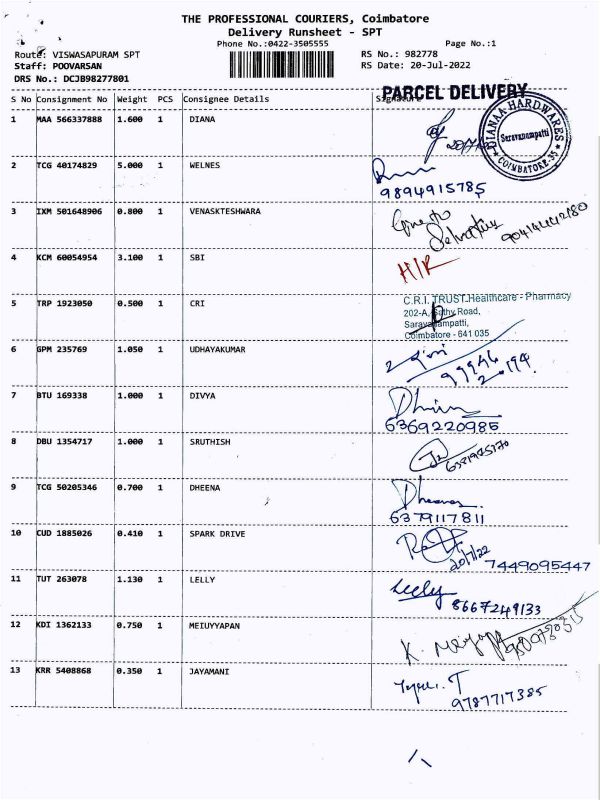 THE PROFESSIONAL COURIERS, Coimbatore
Delivery Runsheet - SPT
Phone No.:0422-3505555 Page No.:1
Route: VISWASAPURAM SPT RS No.: 982778
Staff: POOVARSAN RS Date: 20-Jul-2022
DRS No.: DCJB98277801
PARCEL DELIVERY
S No Consignment No Weight PCS Consignee Details Signature
1 MAA 566337888 1.600 1 DIANA
DIANAA HARDWARES
Saravanampatti
COIMBATORE-35
2 TCG 40174829 5.000 1 WELNES
9894915785
3 IXM 501648906 0.800 1 VENASKTESHWARA
4 KCM 60054954 3.100 1 SBI
H/R
5 TRP 1923050 0.500 1 CRI
C.R.I. TRUST Healthcare - Pharmacy
202-A, Sathy Road,
Saravanampatti,
Coimbatore - 641 035
6 GPM 235769 1.050 1 UDHAYAKUMAR
7 BTU 169338 1.000 1 DIVYA
6369220985
8 DBU 1354717 1.000 1 SRUTHISH
9 TCG 50205346 0.700 1 DHEENA
6379117811
10 CUD 1885026 0.410 1 SPARK DRIVE
20/7/22 7449095447
11 TUT 263078 1.130 1 LELLY
Leely
8667249133
12 KDI 1362133 0.750 1 MEIUYYAPAN
13 KRR 5408868 0.350 1 JAYAMANI
9787717385